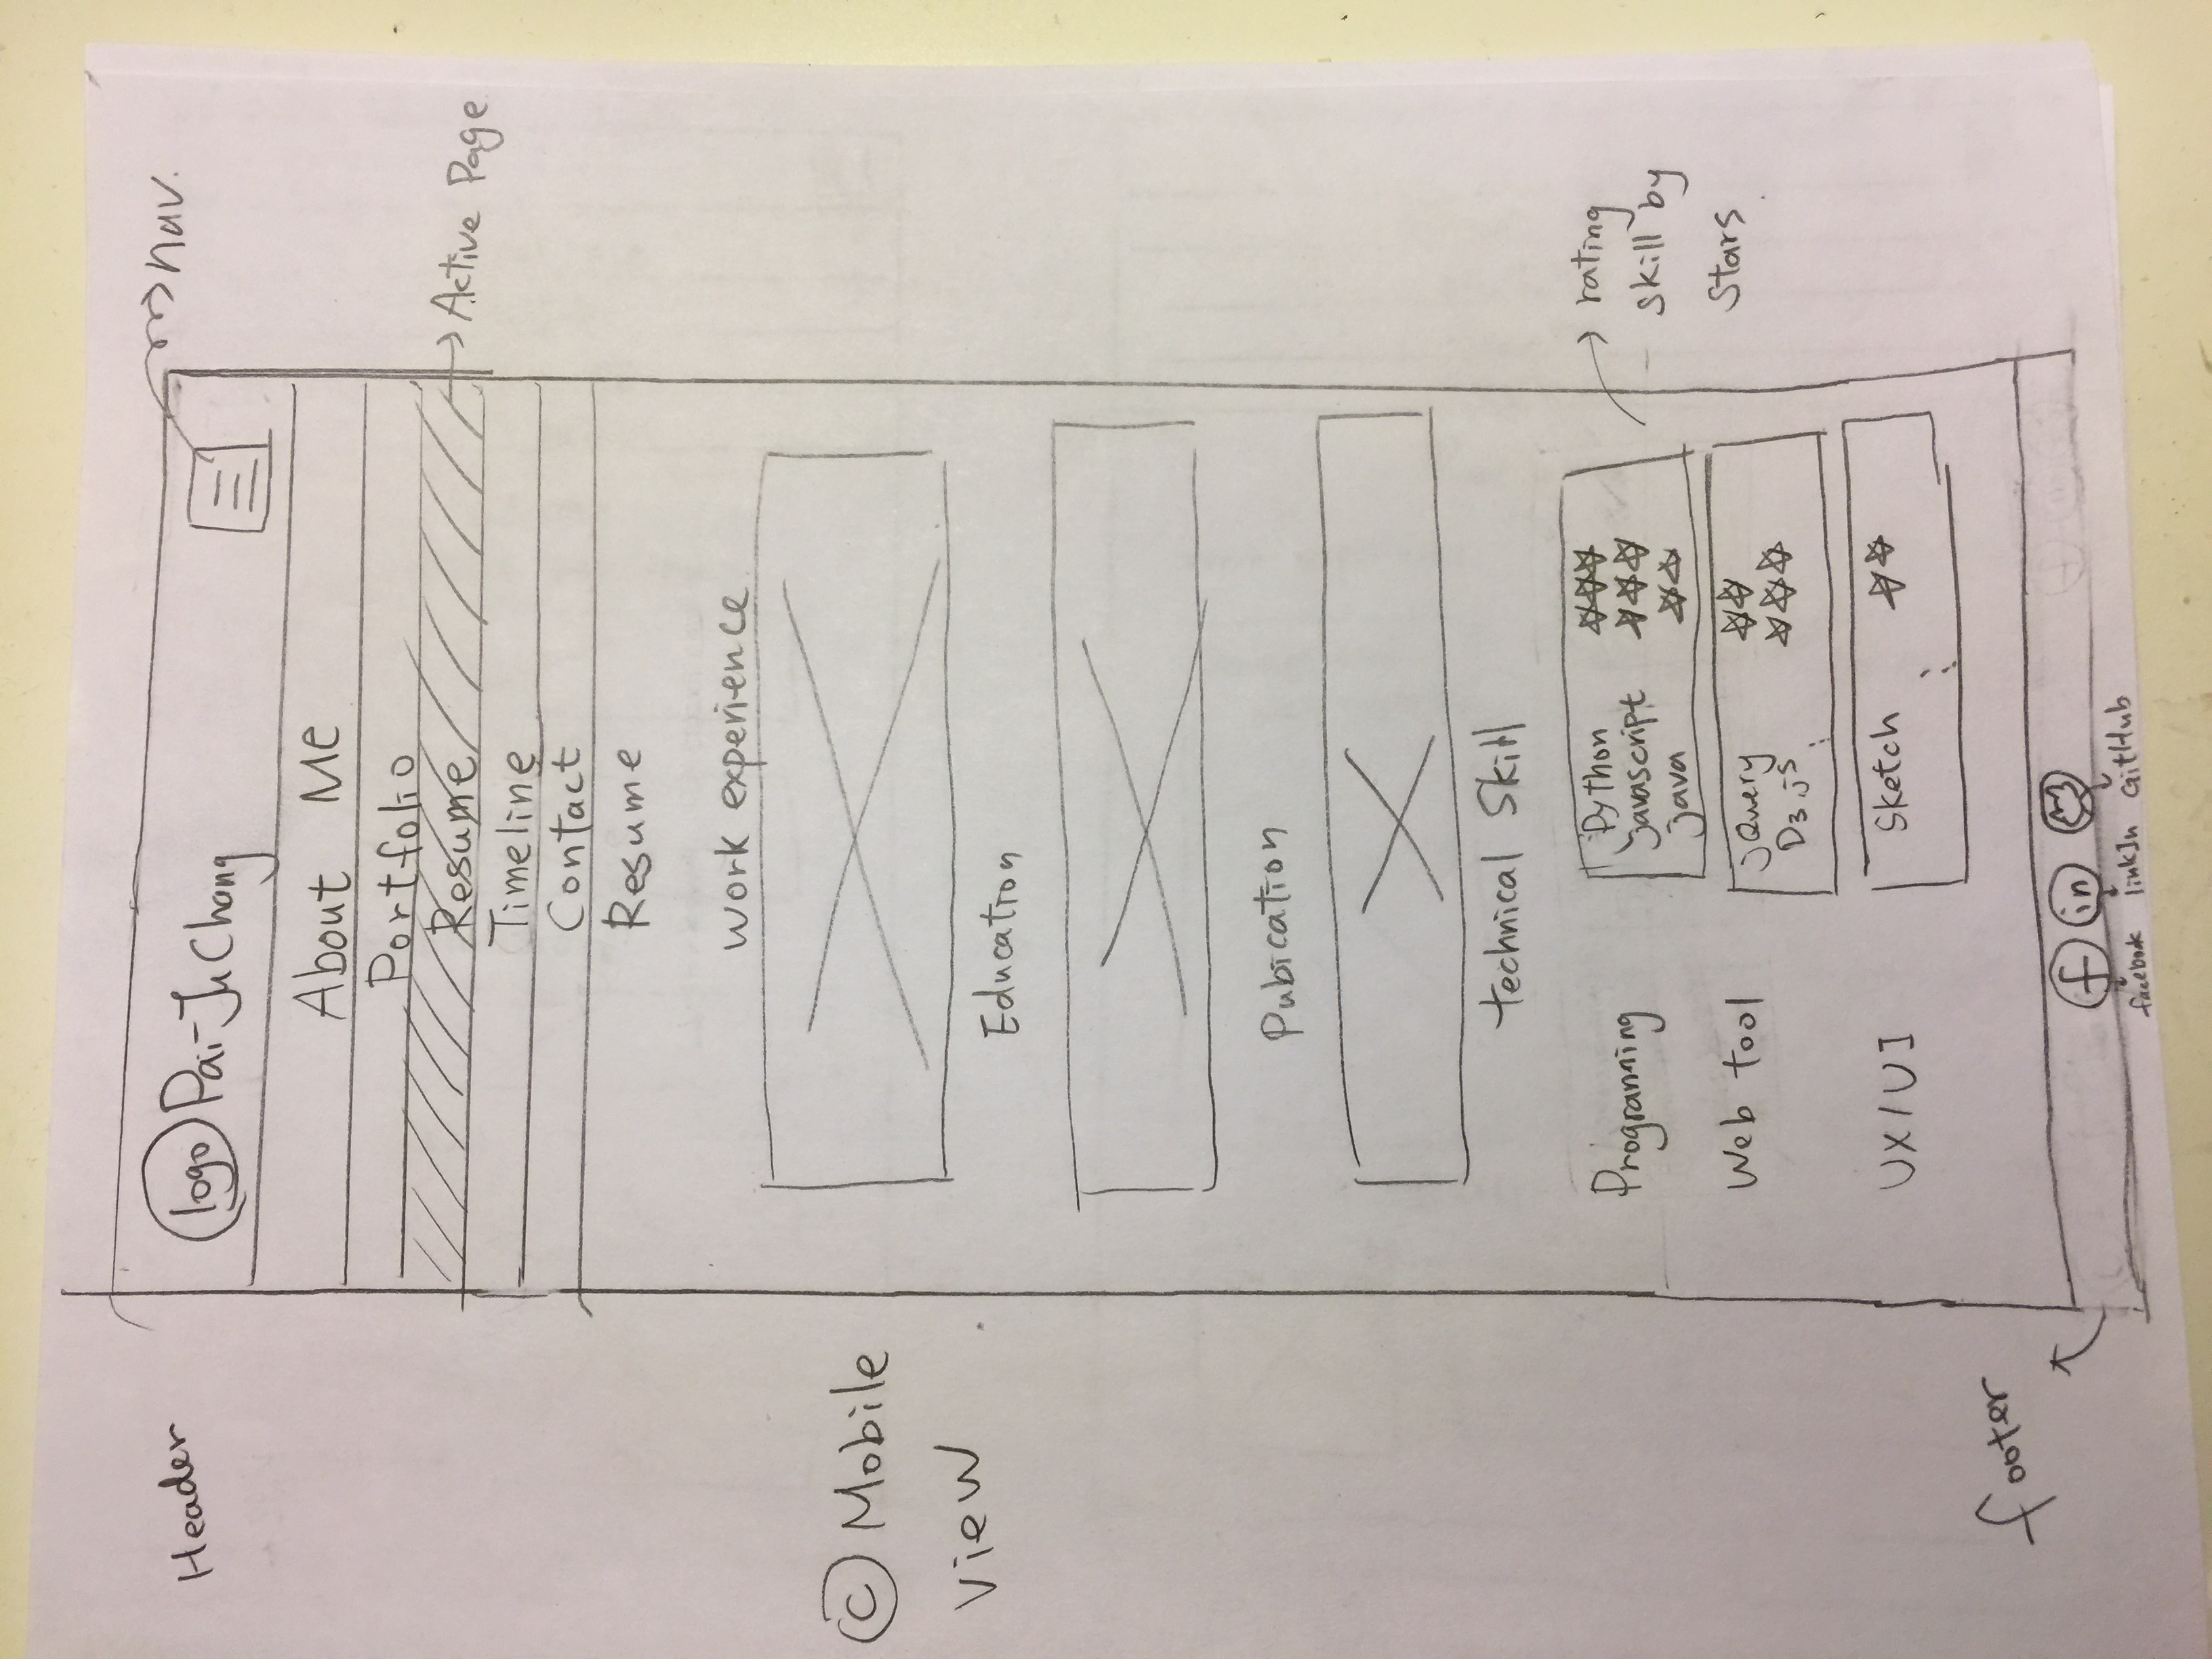 Header
logo Pai-Ju Chang
nav.
About Me
Portfolio
Resume
Active Page
Timeline
Contact
Resume
Work experience
C Mobile
view
Education
Pubication
technical Skill
Programming
Python
javascript
java
rating
skill by
stars
Web tool
jQuery
D3.js
UX/UI
Sketch
footer
f in
facebook linkIn GitHub